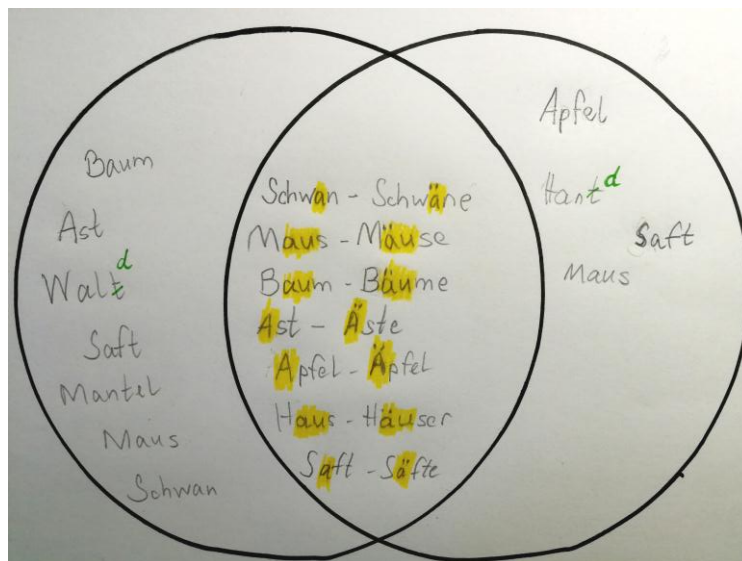 Baum
Ast
Waltd
Saft
Mantel
Maus
Schwan
Schwan - Schwäne
Maus - Mäuse
Baum - Bäume
Ast - Äste
Apfel - Äpfel
Haus - Häuser
Saft - Säfte
Apfel
Hantd
Saft
Maus